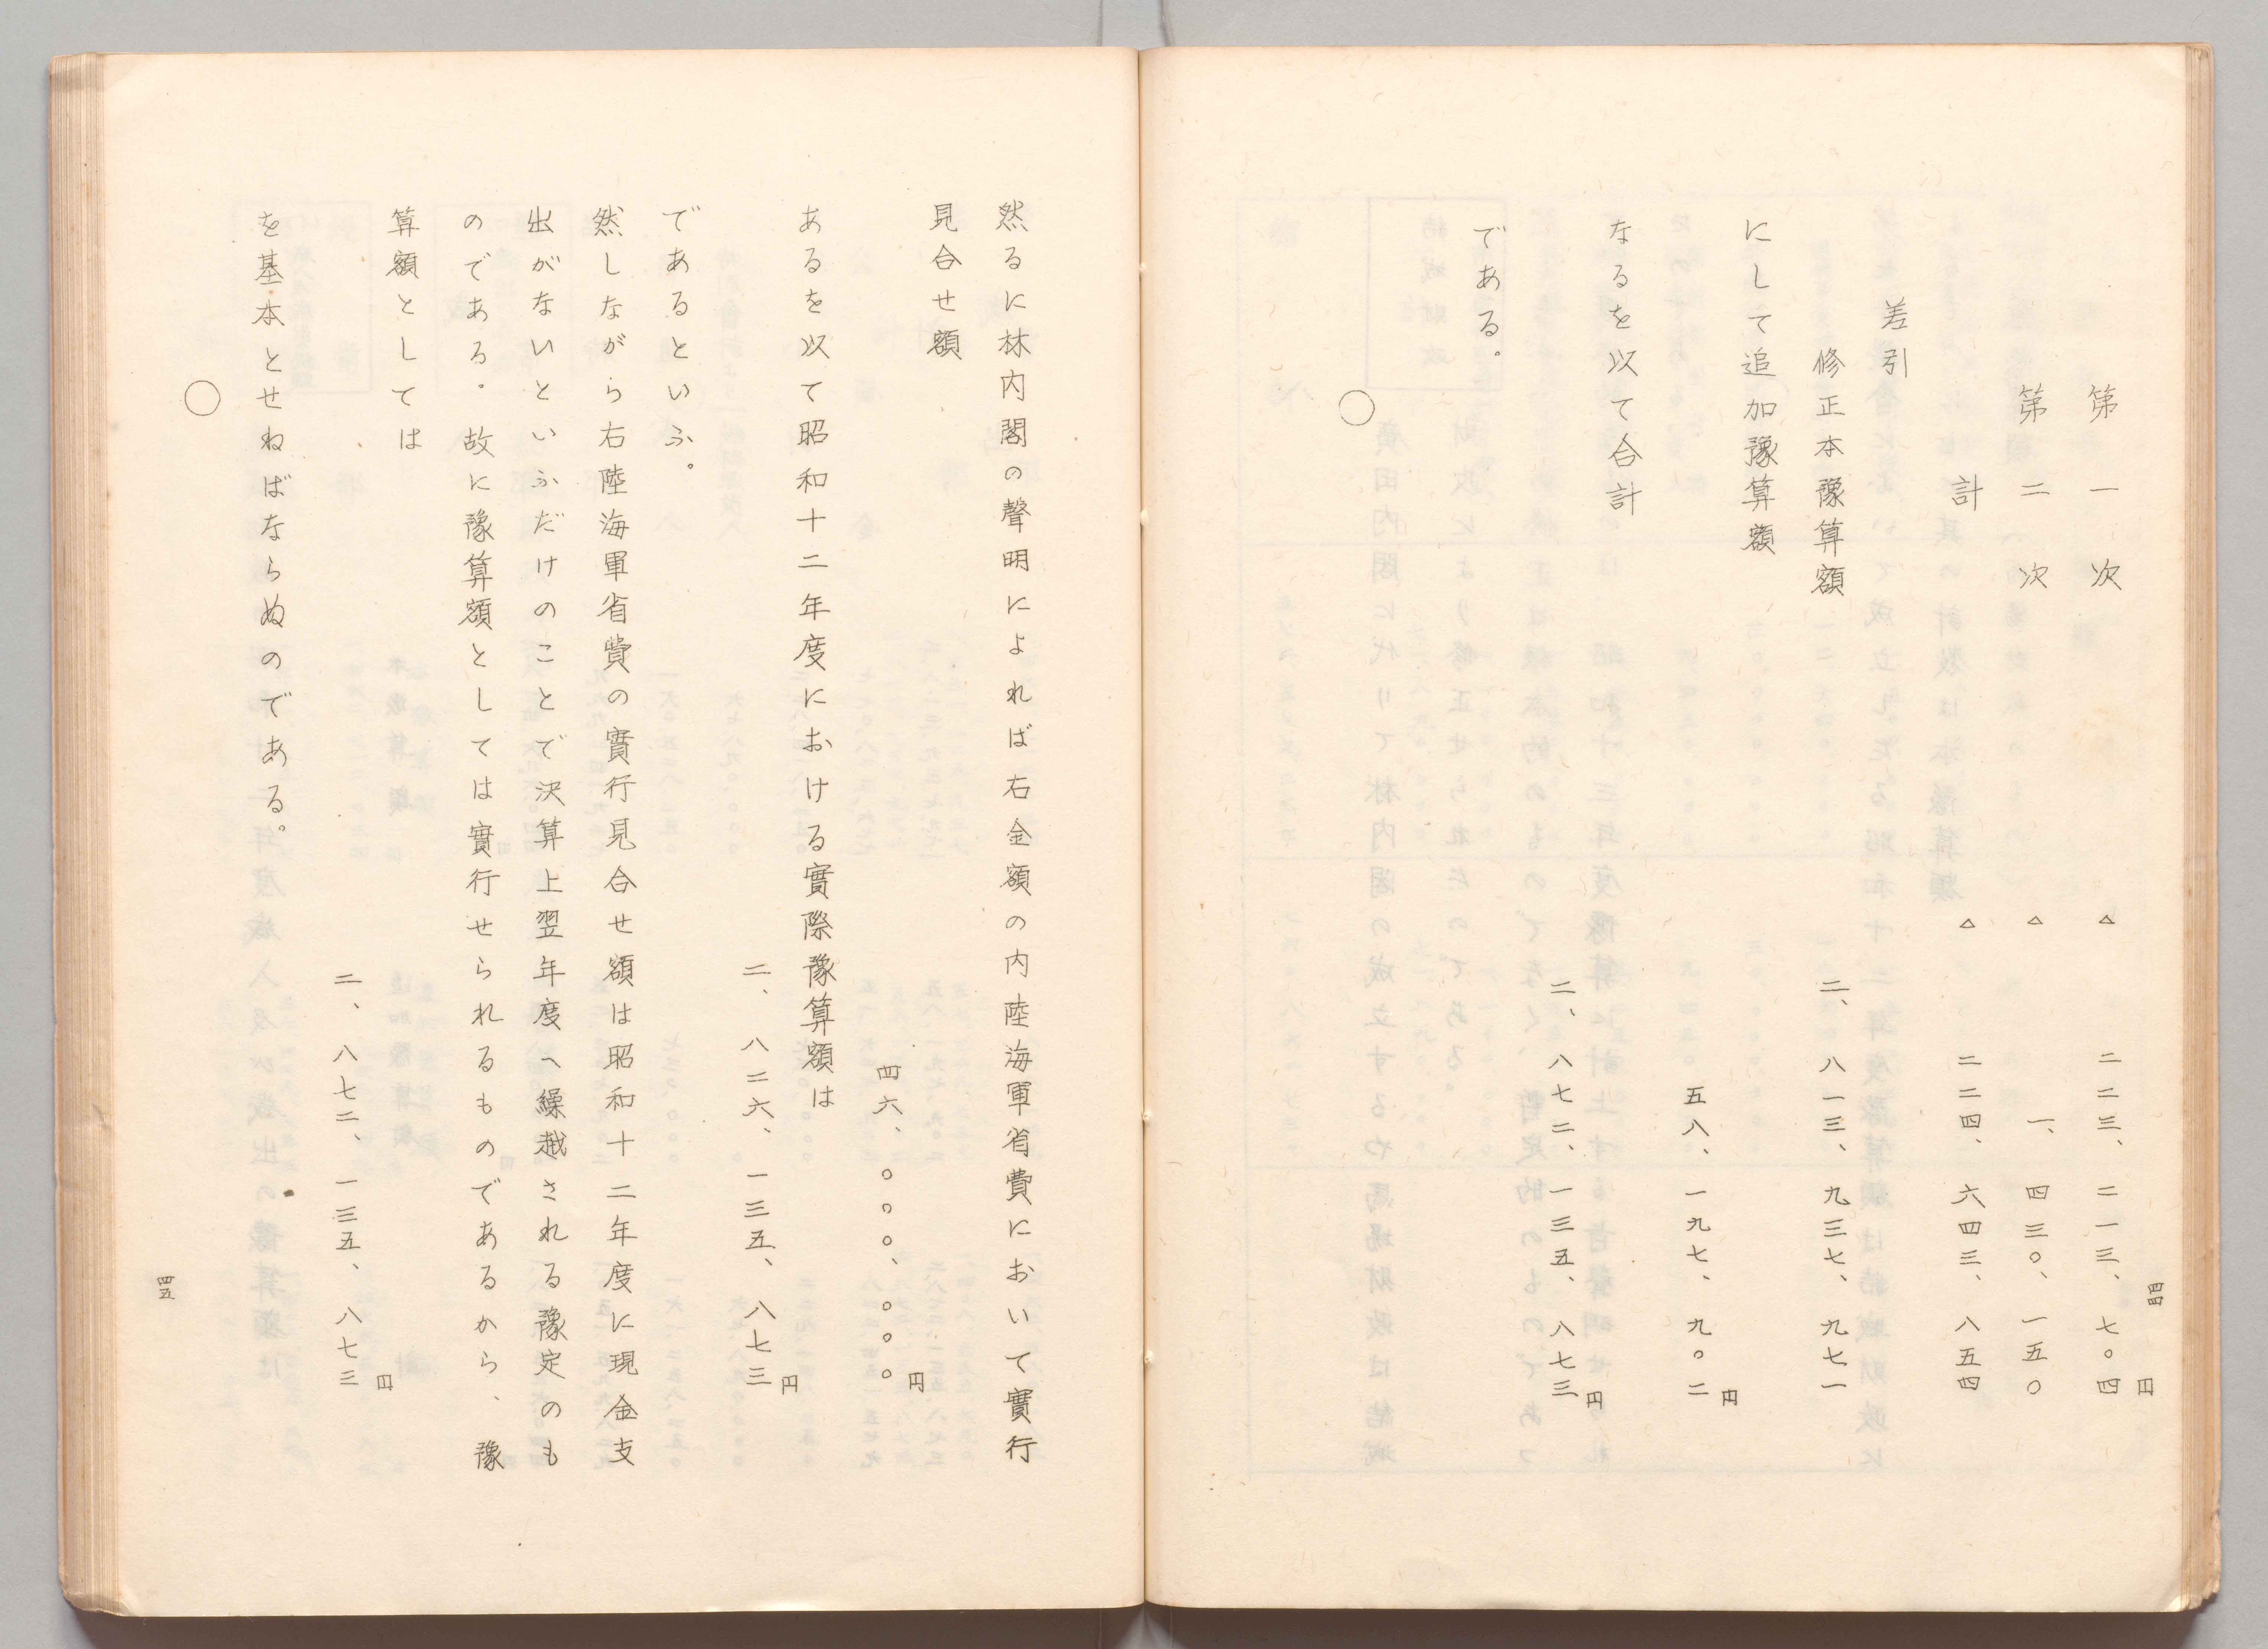 第一次 △ 二二三、二一三、七〇四円
第二次 △ 一、四三〇、一五〇
計 △ 二二四、六四三、八五四
差引
修正本豫算額 二、八一三、九三七、九七一
にして追加豫算額
五八、一九七、九〇二円
なるを以て合計
二、八七二、一三五、八七三円
である。
○
四四
然るに林内閣の聲明によれば右金額の内陸海軍省費において實行
見合せ額
四六、〇〇〇、〇〇〇円
あるを以て昭和十二年度における實際豫算額は
二、八二六、一三五、八七三円
であるといふ。
然しながら右陸海軍省費の實行見合せ額は昭和十二年度に現金支
出がないといふだけのことで決算上翌年度へ繰越される豫定のも
のである。故に豫算額としては實行せられるものであるから、豫
算額としては
二、八七二、一三五、八七三円
を基本とせねばならぬのである。
○
四五